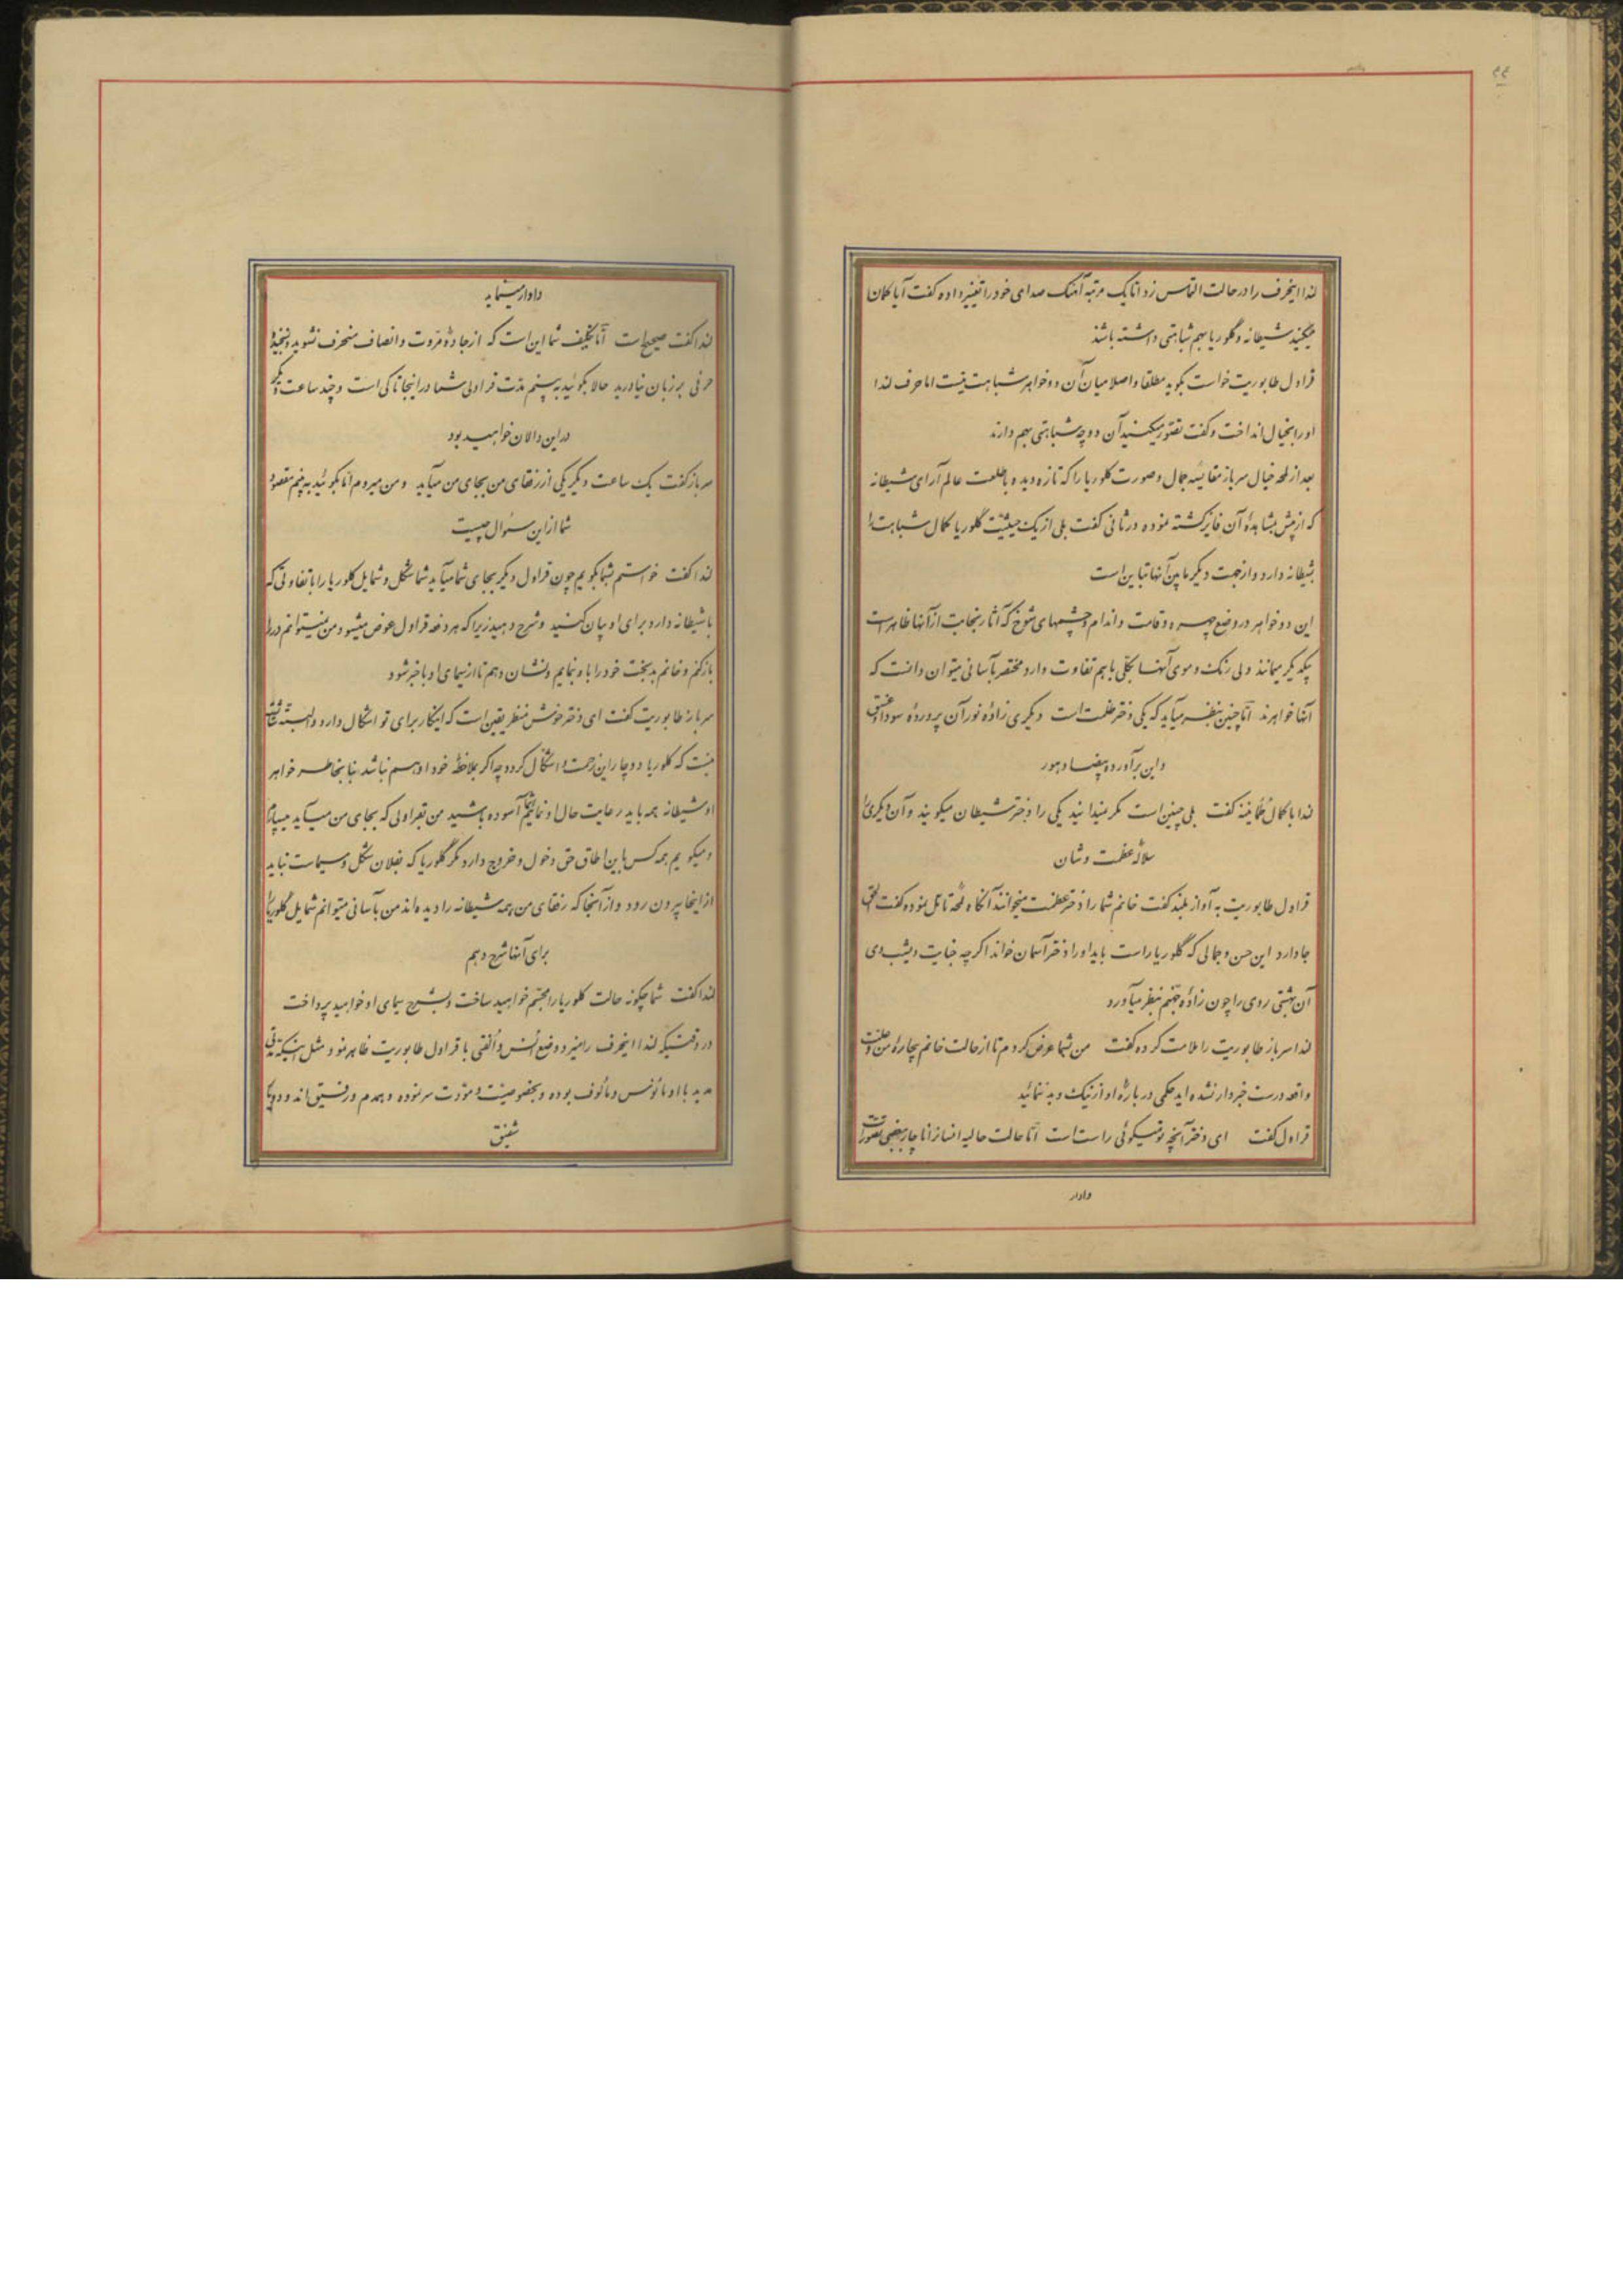 لندا اینحرف را در حالت التماس زد اما یک مرتبه آهنگ صدای خود را تغییر داده گفت آیا گمان
میکنید شیطانه و گلوریا بهم شباهتی داشته باشند
قراول طابوریت خواست بگوید مطلقا و اصلا میان آن دو خواهر شباهت نیست اما حرف لندا
او را بخیال انداخت و گفت تصور میکنید آن دو چه شباهتی بهم دارند
بعد از لمحه خیال سرباز مقایسه جمال و صورت گلوریا را که تازه دیده با طلعت عالم آرای شیطانه
که از پیش بمشاهدهٔ آن فایز گشته نموده در ثانی گفت بلی از یک حیثیت گلوریا کمال شباهت را
بشیطانه دارد و از جهت دیگر مابین آنها تباین است
این دو خواهر در وضع چهره و قامت و اندام و چشمهای شوخ که آثار نجابت از آنها ظاهر است
بیکدیگر میمانند ولی رنگ و موی آنها بکلی باهم تفاوت دارد مختصر بآسانی میتوان دانست که
آنها خواهرند اما چنین بنظر میآید که یکی دختر ظلمت است و دیگری زادهٔ نور آن پروردهٔ سودا و عشق
و این برآورده بیضا و هور
لندا با کمال طمأنینه گفت بلی چنین است مگر نمیدانید یکی را دختر شیطان میگویند و آن دیگری را
سلاله عظمت و شان
قراول طابوریت به آواز بلند گفت خانم شما را دختر عظمت میخوانند آنگاه لمحه تامل نموده گفت الحق
جا دارد این حسن و جمالی که گلوریا راست باید او را دختر آسمان خواند اگرچه جنایت دیشب وی
آن بهشتی روی را چون زادهٔ جهنم بنظر میآورد
لندا سرباز طابوریت را ملامت کرده گفت من بشما عرض کردم تا از حالت خانم بیچارهٔ من و حقیقت
واقعه درست خبردار نشده اید حکمی در بارهٔ او از نیک و بد ننمائید
قراول گفت ای دختر آنچه تو میگوئی راست است اما حالت حالیه انسانرا ناچار ببعضی تصورات
وادار
وادار مینماید
لندا گفت صحیح است اما تکلیف شما این است که از جادهٔ مروت و انصاف منحرف نشوید و نسنجیده
حرفی بر زبان نیاورید حالا بگوئید به بینم مدت قراولی شما در اینجا تا کی است و چند ساعت دیگر
در این دالان خواهید بود
سرباز گفت یک ساعت دیگر یکی از رفقای من بجای من میآید و من میروم اما بگوئید به بینم مقصود
شما از این سئوال چیست
لندا گفت خواستم بشما بگویم چون قراول دیگر بجای شما میآید شما شکل و شمایل گلوریا را با تفاوتی که
با شیطانه دارد برای او بیان کنید و شرح دهید زیرا که هر دفعه قراول عوض میشود من نمیتوانم در را
باز کنم و خانم بدبخت خود را باو بنمایم و نشان دهم تا از سیمای او باخبر شود
سرباز طابوریت گفت ای دختر خوش منظر یقین است که اینکار برای تو اشکال دارد و البته شایسته
نیست که گلوریا دوچار این زحمت و اشکال گردد چه اگر بملاحظهٔ خود او هم نباشد بنا بخاطر خواهر
او شیطانه همه باید رعایت حال او نمائیم شما آسوده باشید من بقراولی که بجای من میآید میسپارم
و میگویم همه کس باین اطاق حق دخول و خروج دارد مگر گلوریا که بفلان شکل و سیماست نباید
از اینجا بیرون رود و از آنجا که رفقای من همه شیطانه را دیده اند من بآسانی میتوانم شمایل گلوریا را
برای آنها شرح دهم
لندا گفت شما چگونه حالت گلوریا را مجسم خواهید ساخت و بشرح سیمای او خواهید پرداخت
در وقتیکه لندا اینحرف را میزد وضع انس و الفتی با قراول طابوریت ظاهر نمود مثل اینکه مدتی
مدید با او مأنوس و مألوف بوده و بخصوصیت و مودت سر نموده و همدم و رفیق اند و دو یار
شفیق